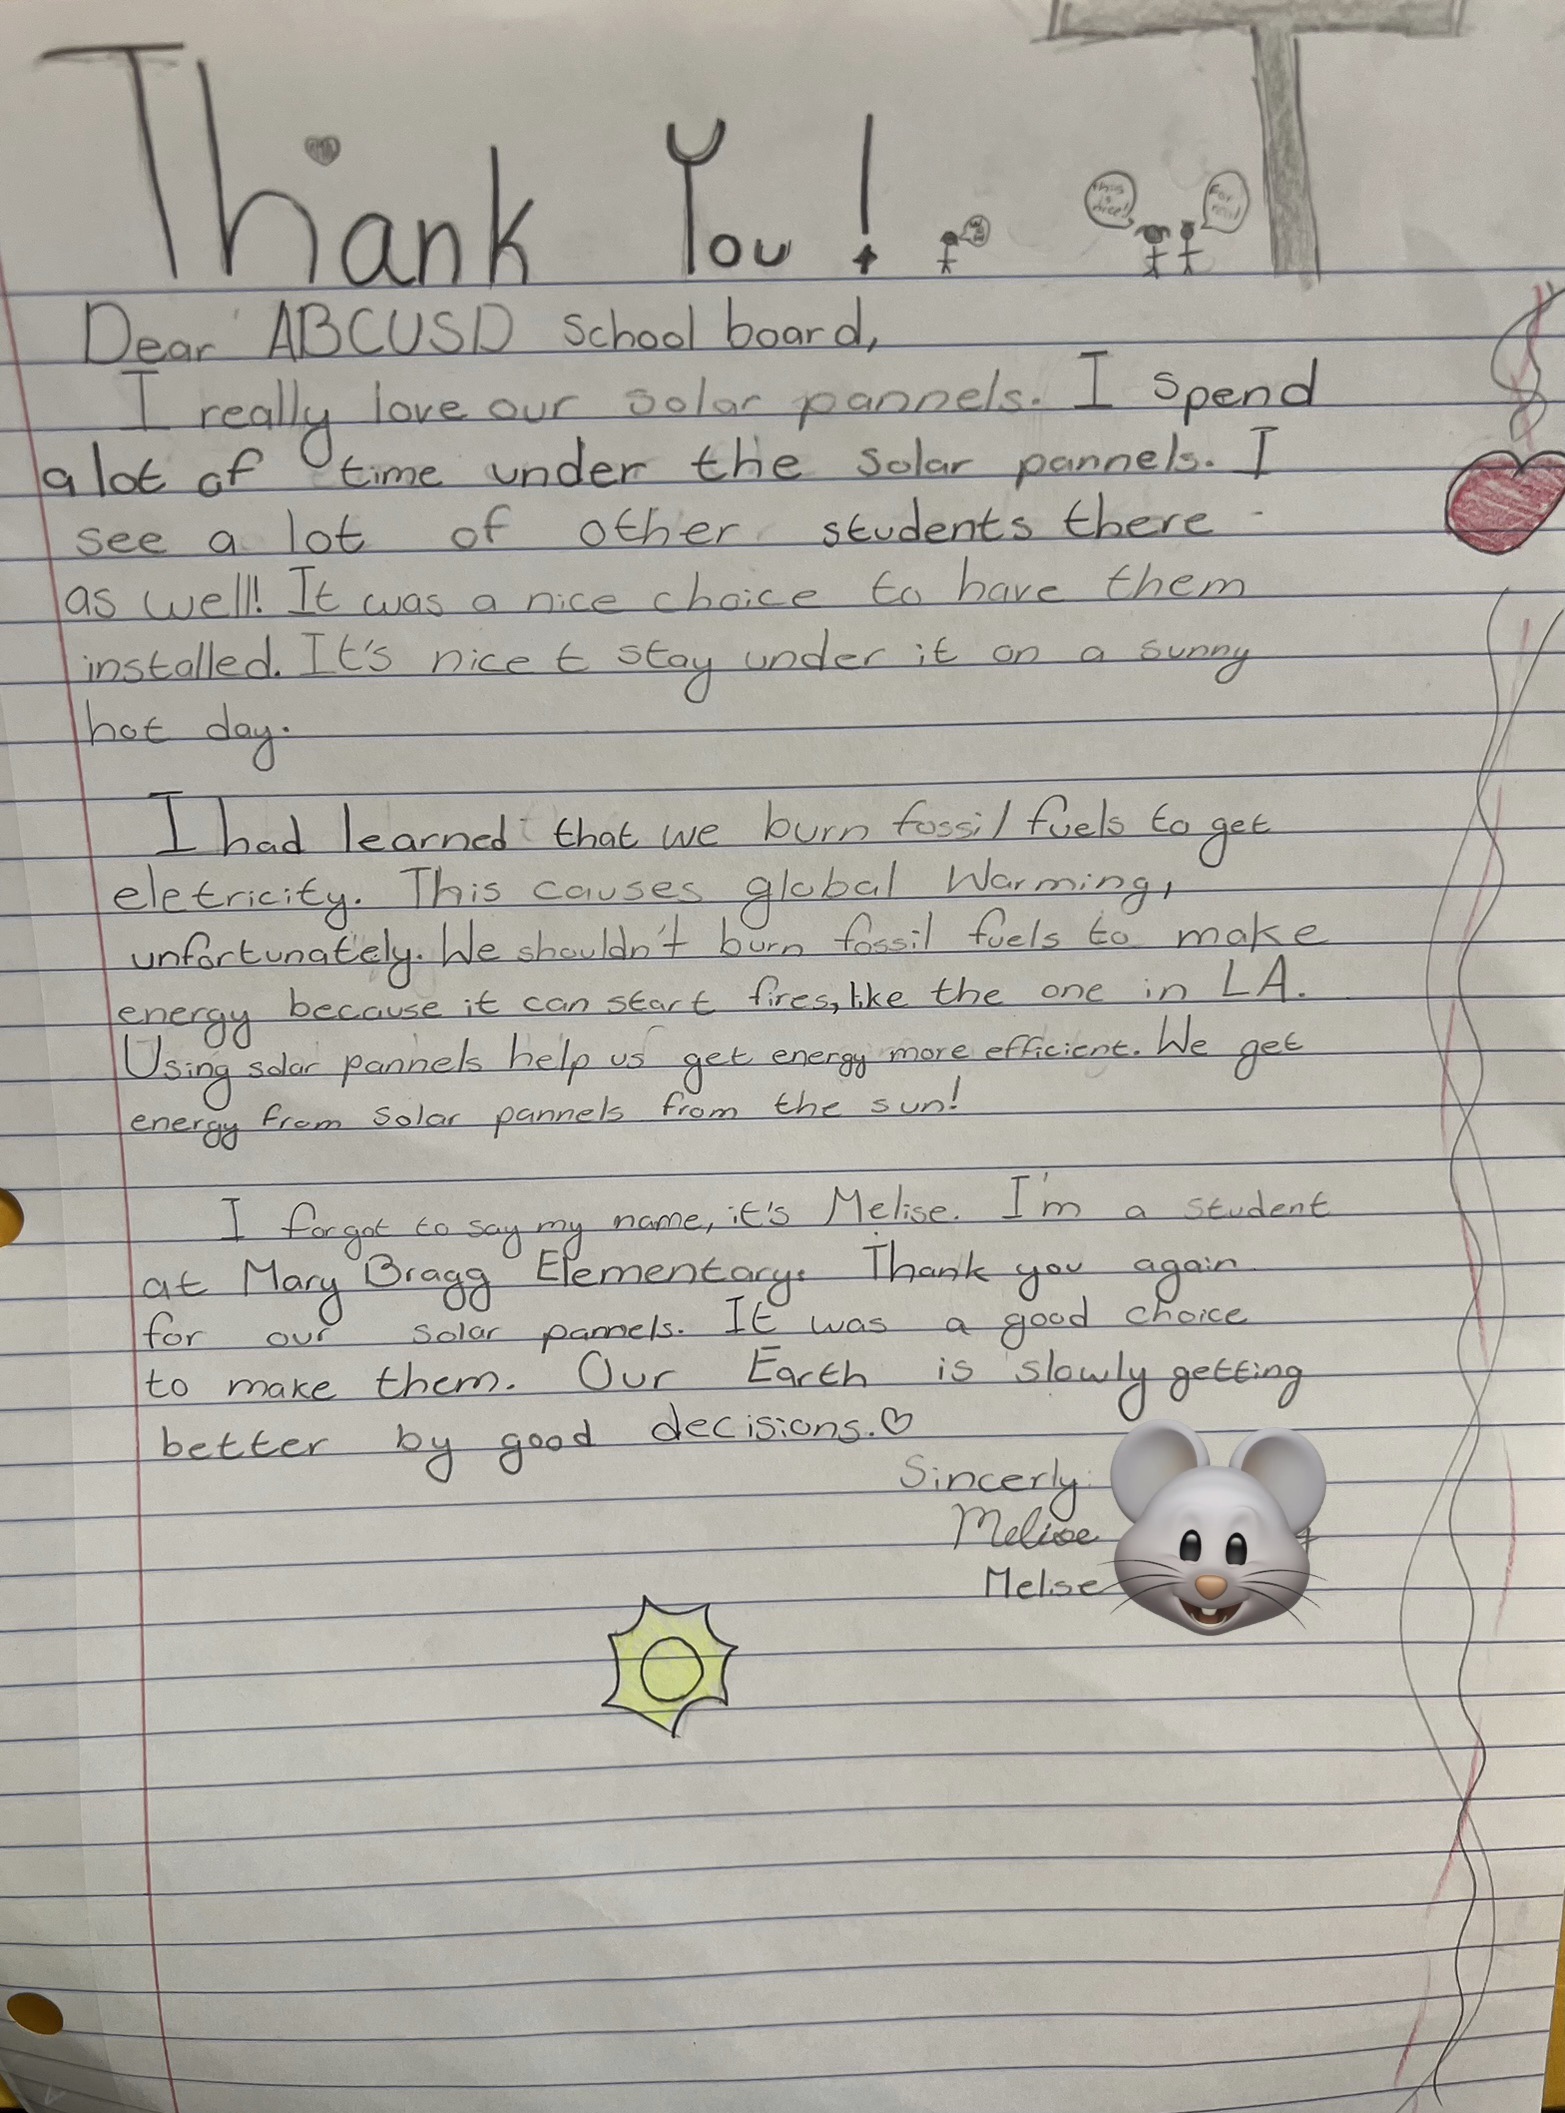 Thank You!
wow
this is nice!
For real!
Dear ABCUSD School board,
I really love our solar pannels. I spend
a lot of time under the solar pannels. I
see a lot of other students there
as well! It was a nice choice to have them
installed. It's nice t stay under it on a sunny
hot day.
I had learned that we burn fossil fuels to get
eletricity. This causes global Warming,
unfortunately. We shouldn't burn fossil fuels to make
energy because it can start fires, like the one in LA.
Using solar pannels help us get energy more efficient. We get
energy from solar pannels from the sun!
I forgot to say my name, it's Melise. I'm a student
at Mary Bragg Elementary. Thank you again
for our solar pannels. It was a good choice
to make them. Our Earth is slowly getting
better by good decisions.♡
Sincerly
Melise
Melise